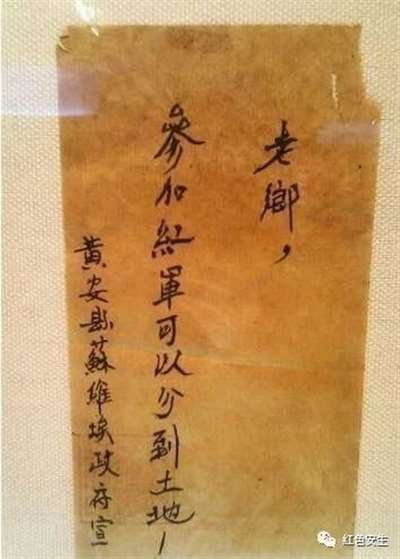 老鄉，
參加紅軍可以分到土地！
黄安縣蘇維埃政府宣
红色安生